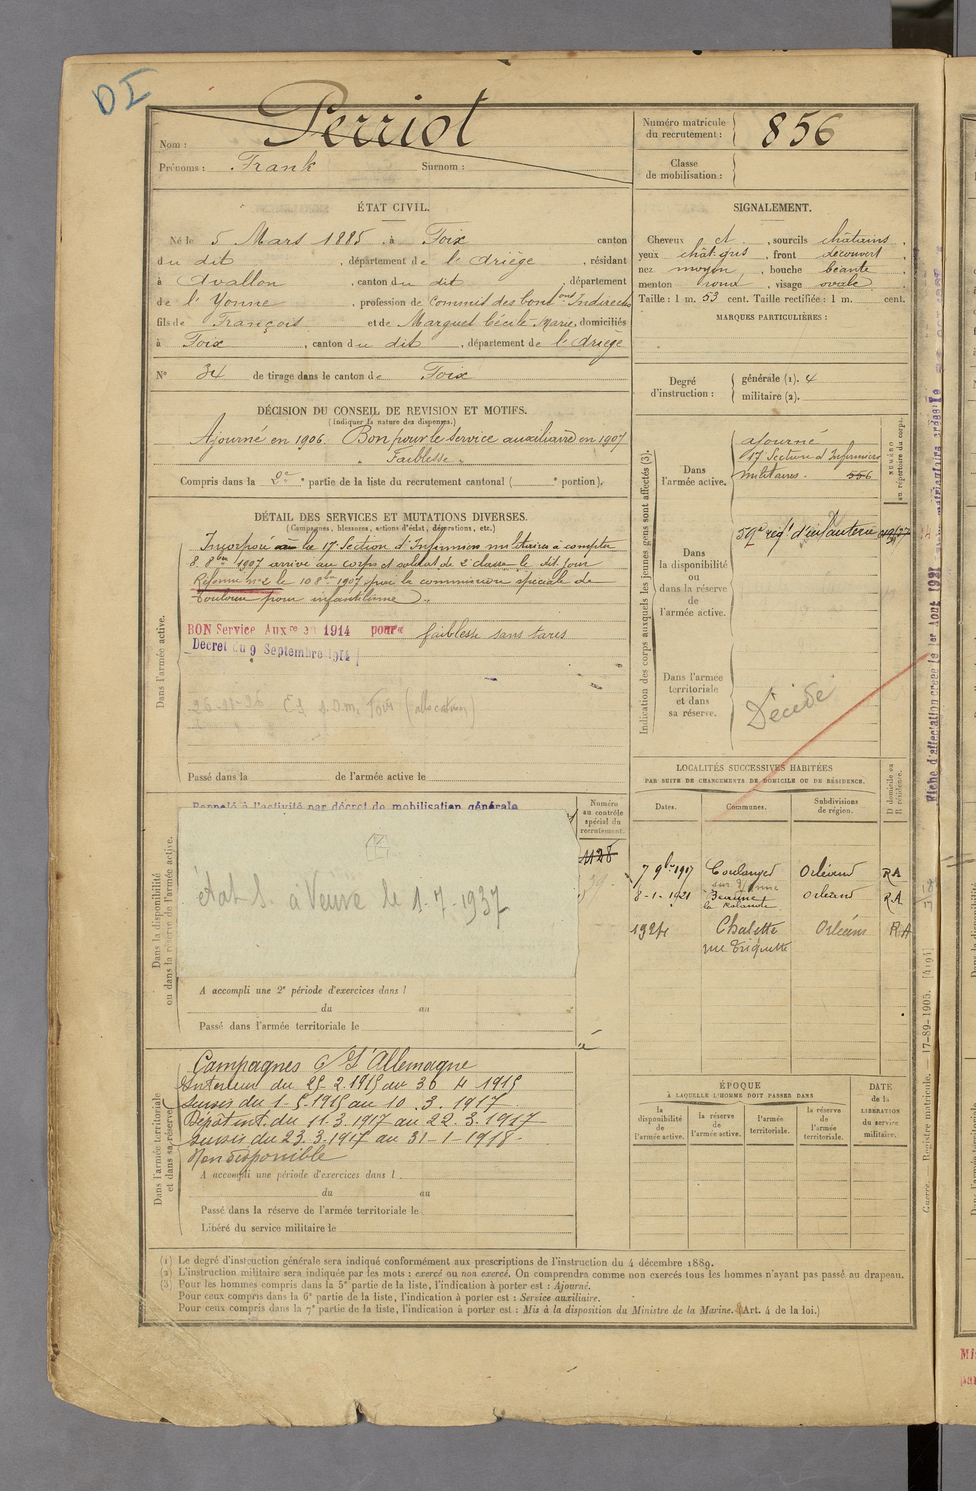 DI
Nom : Perriol
Prénoms : Frank Surnom :
Numéro matricule du recrutement : 856
Classe de mobilisation :
ÉTAT CIVIL.
Né le 5 Mars 1885, à Foix canton
du dit, département de l'Ariège, résidant
à Avallon, canton du dit, département
de l'Yonne, profession de Commis des Contons Indirectes
fils de François et de Marguet Cécile-Marie, domiciliés
à Foix, canton du dit, département de l'Ariège
N° 34 de tirage dans le canton de Foix
SIGNALEMENT.
Cheveux ch, sourcils châtains,
yeux chât. gris, front découvert,
nez moyen, bouche béante,
menton rond, visage ovale.
Taille : 1 m. 53 cent. Taille rectifiée : 1 m. cent.
MARQUES PARTICULIÈRES :
Degré d'instruction : générale (1). 4
militaire (2).
DÉCISION DU CONSEIL DE REVISION ET MOTIFS.
(Indiquer la nature des dispenses.)
Ajourné en 1906. Bon pour le service auxiliaire en 1907
"Faiblesse"
Compris dans la 2e partie de la liste du recrutement cantonal ( e portion).
DÉTAIL DES SERVICES ET MUTATIONS DIVERSES.
(Campagnes, blessures, actions d'éclat, décorations, etc.)
Dans l'armée active.
Incorporé à la 17e Section d'Infirmiers militaires à compter
8. 8bre 1907 arrivé au corps et soldat de 2e classe le dit jour
Réformé n°2 le 10 8bre 1907 par la commission spéciale de
Toulouse pour infantilisme.
BON Service Auxre en 1914 pour faiblesse sans tares
Décret du 9 Septembre 1914
26-11-36 Foix (allocation)
Passé dans la de l'armée active le
Indication des corps auxquels les jeunes gens sont affectés (3).
NUMÉRO au répertoire du corps.
Dans l'armée active.
ajourné
17e Section d'Infirmiers
militaires. 556
Dans la disponibilité ou dans la réserve de l'armée active.
59e régt d'infanterie
Dans l'armée territoriale et dans sa réserve.
Décédé
LOCALITÉS SUCCESSIVES HABITÉES
PAR SUITE DE CHANGEMENTS DE DOMICILE OU DE RÉSIDENCE.
Dates. Communes. Subdivisions de région. D domicile ou R résidence.
7 9bre 1917 Coulanges sur Yonne Orléans RA
8-1-1921 Beaune la Rolande Orléans RA
1924 Chalette rue Triquette Orléans RA
Rappelé à l'activité par décret de mobilisation générale
Numéro au contrôle spécial du recrutement.
1128
Dans la disponibilité ou dans la réserve de l'armée active.
état S. à Veuve le 1-7-1937
A accompli une 2e période d'exercices dans l
du au
Passé dans l'armée territoriale le
Dans l'armée territoriale et dans sa réserve.
Campagnes c/ l'Allemagne
Intérieur du 25.2.1915 au 30 4 1915
Sursis du 1-5-1915 au 10.3.1917
Dépôt int. du 11.3.1917 au 22.3.1917
Sursis du 23.3.1917 au 31-1-1918.
Non disponible
A accompli une période d'exercices dans l
du au
Passé dans la réserve de l'armée territoriale le
Libéré du service militaire le
ÉPOQUE
À LAQUELLE L'HOMME DOIT PASSER DANS
la disponibilité de l'armée active. la réserve de l'armée active. l'armée territoriale. la réserve de l'armée territoriale.
DATE de la LIBÉRATION du service militaire.
(1) Le degré d'instruction générale sera indiqué conformément aux prescriptions de l'instruction du 4 décembre 1889.
(2) L'instruction militaire sera indiquée par les mots : exercé ou non exercé. On comprendra comme non exercés tous les hommes n'ayant pas passé au drapeau.
(3) Pour les hommes compris dans la 5e partie de la liste, l'indication à porter est : Ajourné.
Pour ceux compris dans la 6e partie de la liste, l'indication à porter est : Service auxiliaire.
Pour ceux compris dans la 7e partie de la liste, l'indication à porter est : Mis à la disposition du Ministre de la Marine. (Art. 4 de la loi.)
Guerre. Registre matricule. 17-89-1905. [4194]